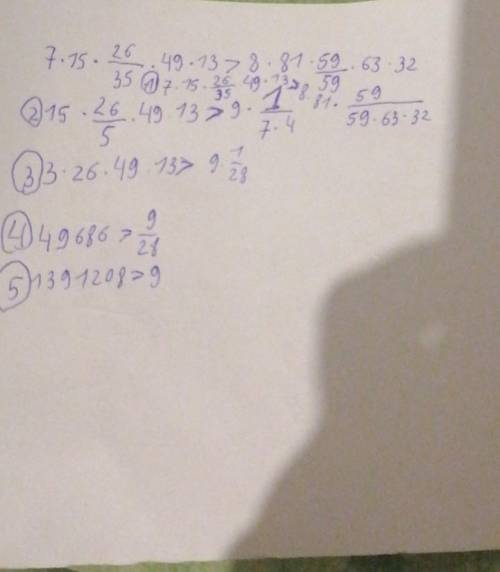 7·15·26/35·49·13>8·81·59/59·63·32
① 7·15·26/35·49·13>8·81·59/59·63·32
② 15·26/5·49·13>9·1/7·4
③ 3·26·49·13>9·1/28
④ 49686>9/28
⑤ 1391208>9